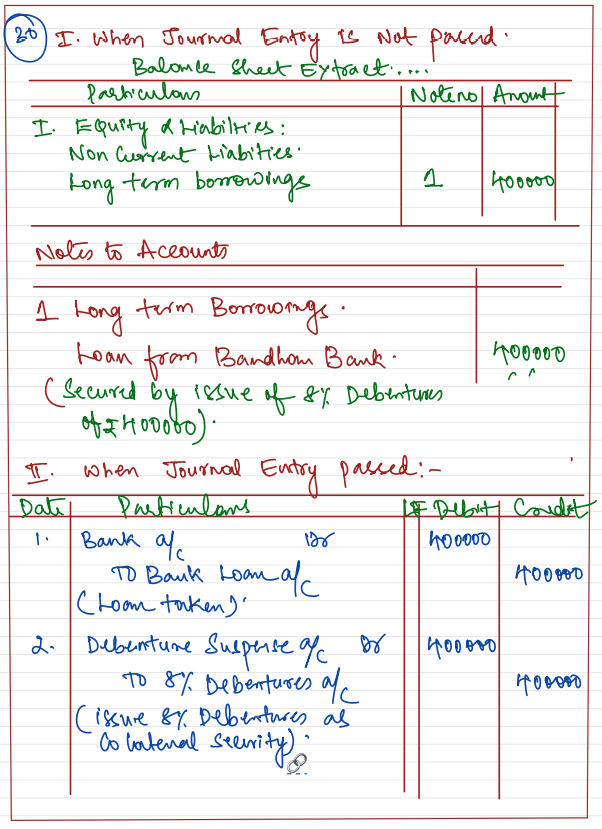 30 I. When Journal Entry is Not passed.
Balance Sheet Extract.....
Particulars Note no Amount
I. Equity & Liabilities:
Non Current Liabities.
Long term borrowings 1 400000
Notes to Accounts
1 Long term Borrowings.
Loan from Bandhan Bank. 400000
(Secured by issue of 8% Debentures
of ₹400000).
II. When Journal Entry passed:-
Date Particulars LF Debit Credit
1. Bank a/c Dr 400000
To Bank Loan a/c 400000
(Loan taken).
2. Debenture Suspense a/c Dr 400000
To 8% Debentures a/c 400000
(issue 8% Debentures as
Colateral security).